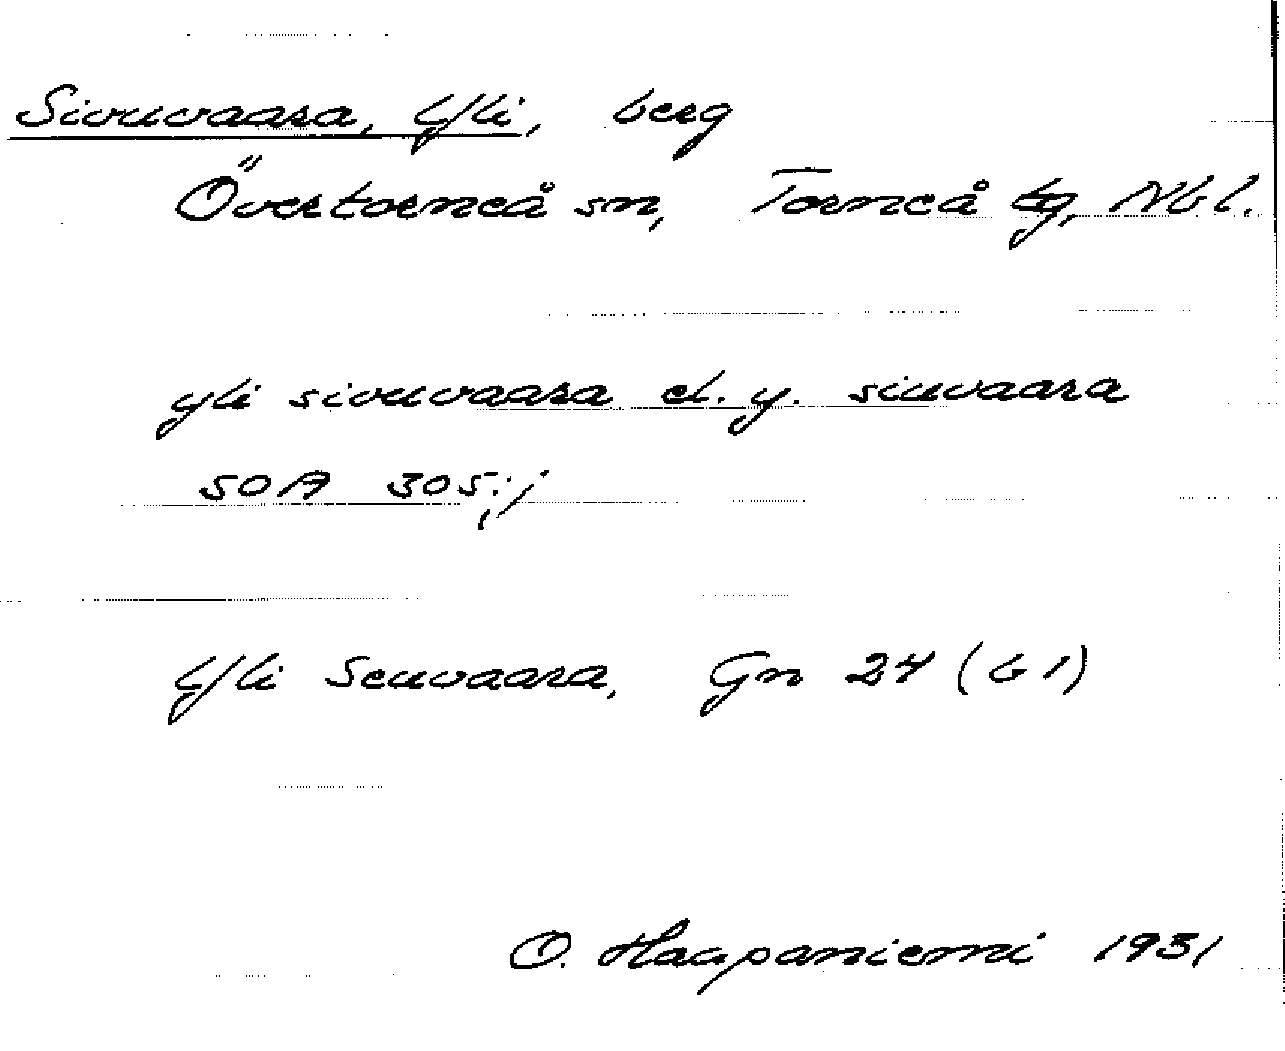 Sivuvaara, Yli, berg
Övertorneå sn, Torneå tg, Nbl.
yli sivuvaara el. y. siuvaara
SOA 305; j
Yli Seuvaara, Gn 24 (b1)
O. Haapaniemi 1931